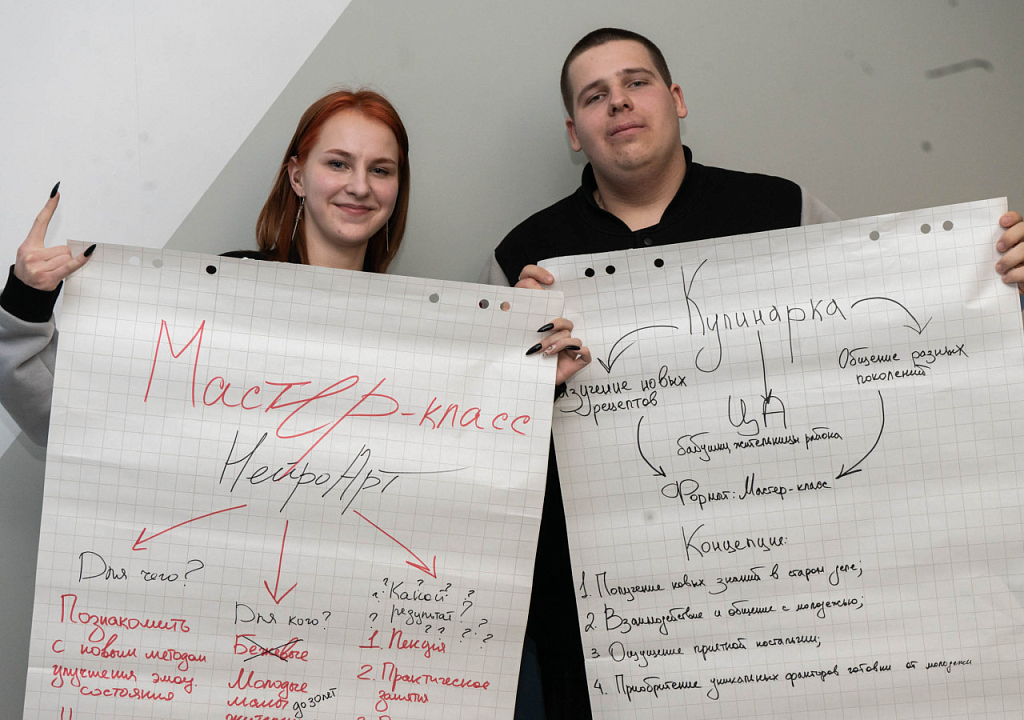 Мастер-класс
НейроАрт
Для чего?
Познакомить
с новым методом
улучшения эмоц.
состояния
Для кого?
Бежевые
Молодые
мамы до 30 лет
? Какой ?
? результат ?
? ? ? ?
1. Лекция
2. Практическое
занятие
Кулинарка
Изучение новых
рецептов
ЦА
бабушки жительницы района
Общение разных
поколений
Формат: Мастер-класс
Концепция:
1. Получение новых знаний в старом деле;
2. Взаимодействие и общение с молодежью;
3. Ощущение приятной ностальгии;
4. Приобритение уникальных факторов готовки от молодежи